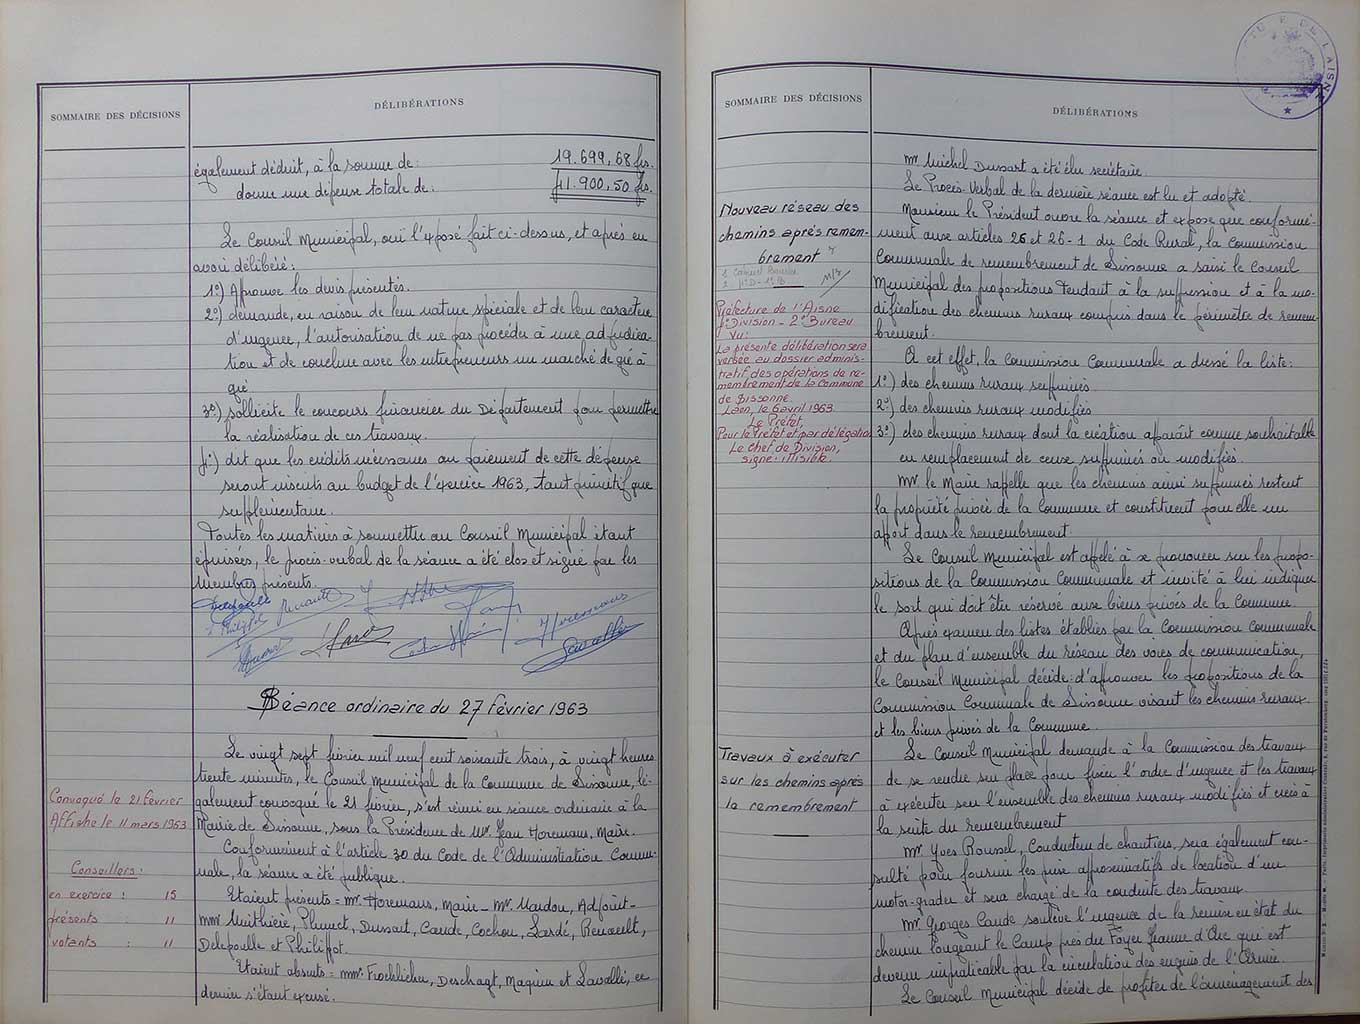 SOMMAIRE DES DÉCISIONS
DÉLIBÉRATIONS
également déduit, à la somme de: 19.699,68 frs.
donne une dépense totale de: 41.900,50 frs.
Le Conseil Municipal, ouï l'exposé fait ci-dessus, et après en
avoir délibéré:
1°) Approuve les devis présentés.
2°) demande, en raison de leur nature spéciale et de leur caractère
d'urgence, l'autorisation de ne pas procéder à une adjudica-
tion et de conclure avec les entrepreneurs un marché de gré à
gré
3°) sollicite le concours financier du Département pour permettre
la réalisation de ces travaux.
4°) dit que les crédits nécessaires au paiement de cette dépense
seront inscrits au budget de l'exercice 1963, tant primitif que
supplémentaire.
Toutes les matières à soumettre au Conseil Municipal étant
épuisées, le procès-verbal de la séance a été clos et signé par les
membres présents.
Delepoulle Renault
Philippot
Horemans
Lavallée
Séance ordinaire du 27 février 1963
Le vingt sept février mil neuf cent soixante trois, à vingt heures
trente minutes, le Conseil Municipal de la Commune de Sissonne, lé-
galement convoqué le 21 février, s'est réuni en séance ordinaire à la
Mairie de Sissonne, sous la Présidence de Mr. Jean Horemans, Maire.
Conformément à l'article 30 du Code de l'Administration Commu-
nale, la séance a été publique.
Etaient présents = Mr. Horemans, Maire - Mr. Mardou, Adjoint -
MM. Muithière, Plumet, Dussart, Caude, Cochou, Lardé, Renault,
Delepoulle et Philippot.
Etaient absents = MM. Froehlicher, Deschagt, Magnien et Lavallée, ce
dernier s'étant excusé.
Convoqué le 21 février
Affiché le 11 mars 1963
Conseillers:
en exercice : 15
présents : 11
votants : 11
SOMMAIRE DES DÉCISIONS
DÉLIBÉRATIONS
DE L'AISNE
Mr Michel Dussart a été élu secrétaire.
Le Procès-Verbal de la dernière séance est lu et adopté.
Monsieur le Président ouvre la séance et expose que conformé-
ment aux articles 26 et 26-1 du Code Rural, la Commission
Communale de remembrement de Sissonne a saisi le Conseil
Municipal des propositions tendant à la suppression et à la mo-
dification des chemins ruraux compris dans le périmètre de remem-
brement.
A cet effet, la Commission Communale a dressé la liste:
1°) des chemins ruraux supprimés
2°) des chemins ruraux modifiés
3°) des chemins ruraux dont la création apparaît comme souhaitable
en remplacement de ceux supprimés ou modifiés.
Mr le Maire rappelle que les chemins ainsi supprimés restent
la propriété privée de la Commune et constituent pour elle un
apport dans le remembrement.
Le Conseil Municipal est appelé à se prononcer sur les propo-
sitions de la Commission Communale et invité à lui indiquer
le sort qui doit être réservé aux biens privés de la Commune.
Après examen des listes établies par la Commission Communale
et du plan d'ensemble du réseau des voies de communication,
le Conseil Municipal décide: d'approuver les propositions de la
Commission Communale de Sissonne visant les chemins ruraux
et les biens privés de la Commune.
Le Conseil Municipal demande à la Commission des travaux
de se rendre sur place pour fixer l'ordre d'urgence et les travaux
à exécuter sur l'ensemble des chemins ruraux modifiés et créés à
la suite du remembrement
Mr Yves Roussel, Conducteur de chantiers, sera également con-
sulté pour fournir les prix approximatifs de location d'un
motor-grader et sera chargé de la conduite des travaux.
Mr Georges Caude soulève l'urgence de la remise en état du
chemin longeant le Camp près du Foyer Jeanne d'Arc qui est
devenu impraticable par la circulation des engins de l'Armée.
Le Conseil Municipal décide de profiter de l'aménagement des
Nouveau réseau des
chemins après remem-
brement
Préfecture de l'Aisne
1° Division - 2° Bureau
Vu:
La présente délibération sera
versée au dossier adminis-
tratif des opérations de re-
membrement de la Commune
de Sissonne.
Laon, le 6 avril 1963
Le Préfet,
Pour le Préfet et par délégation
Le Chef de Division,
signé: illisible.
Travaux à exécuter
sur les chemins après
le remembrement